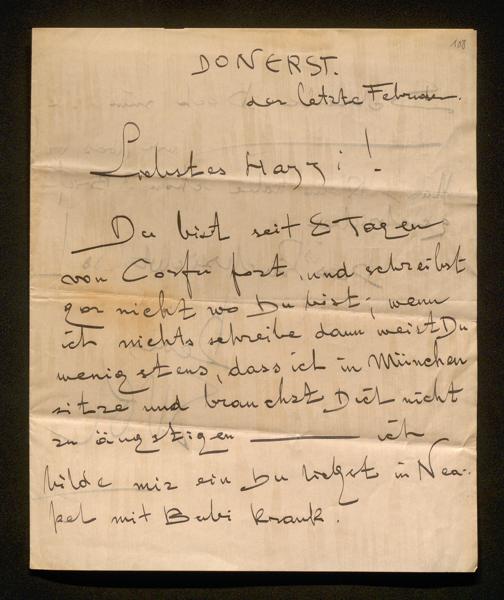 108
DONERST.
der letzte Februar.
Liebstes Hazzi!
Du bist seit 8 Tagen
von Corfu fort, und schreibst
gar nicht wo Du bist; wenn
ich nichts schreibe dann weist Du
wenigstens, dass ich in München
sitze und brauchst Dich nicht
zu ängstigen ——— ich
bilde mir ein Du liegst in Nea-
pel mit Bubi krank.